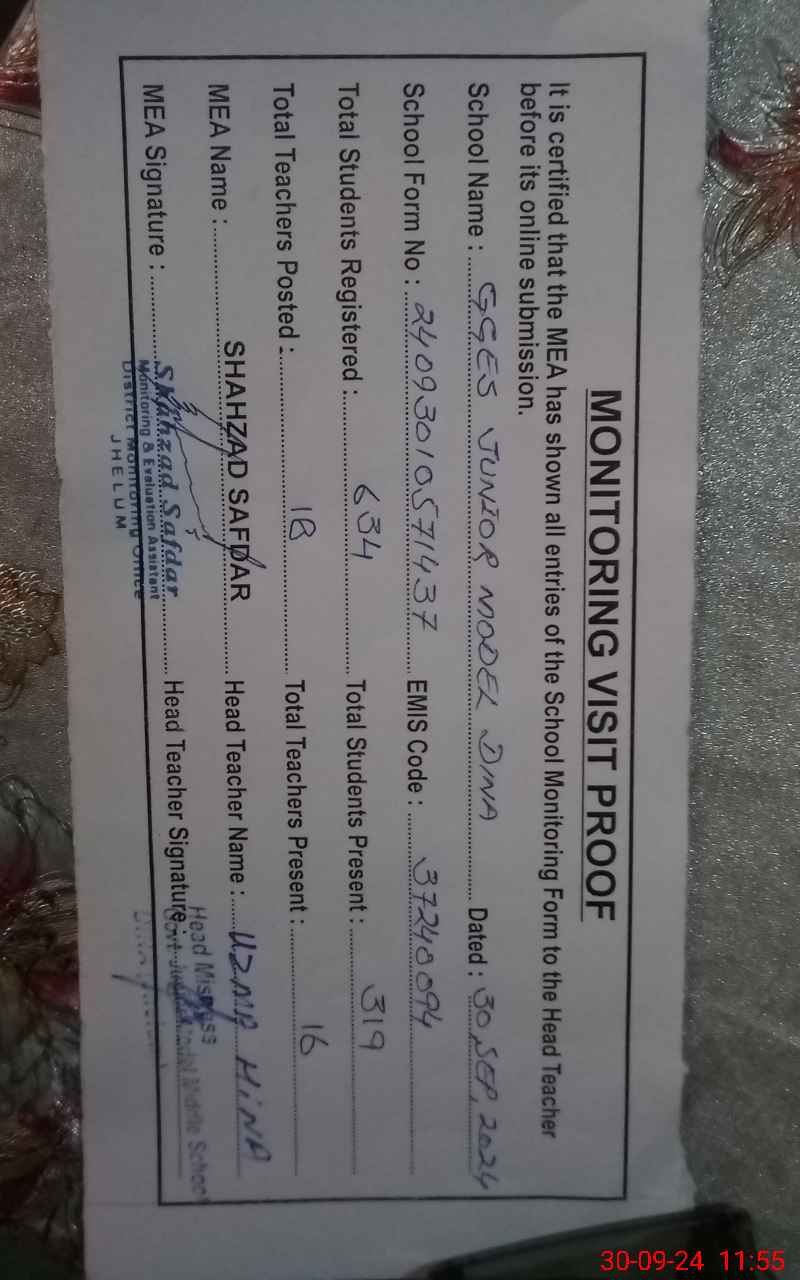 MONITORING VISIT PROOF
It is certified that the MEA has shown all entries of the School Monitoring Form to the Head Teacher
before its online submission.
School Name : GGES JUNIOR MODEL DINA Dated : 30, SEP, 2024
School Form No : 24093010571437 EMIS Code : 37240094
Total Students Registered : 634 Total Students Present : 319
Total Teachers Posted : 18 Total Teachers Present : 16
MEA Name : SHAHZAD SAFDAR Head Teacher Name : UZMA HINA
MEA Signature : Head Teacher Signature :
Shahzad Safdar
Monitoring & Evaluation Assistant
District Monitoring Office
JHELUM
Head Mistress
Govt. Model Middle School
30-09-24 11:55